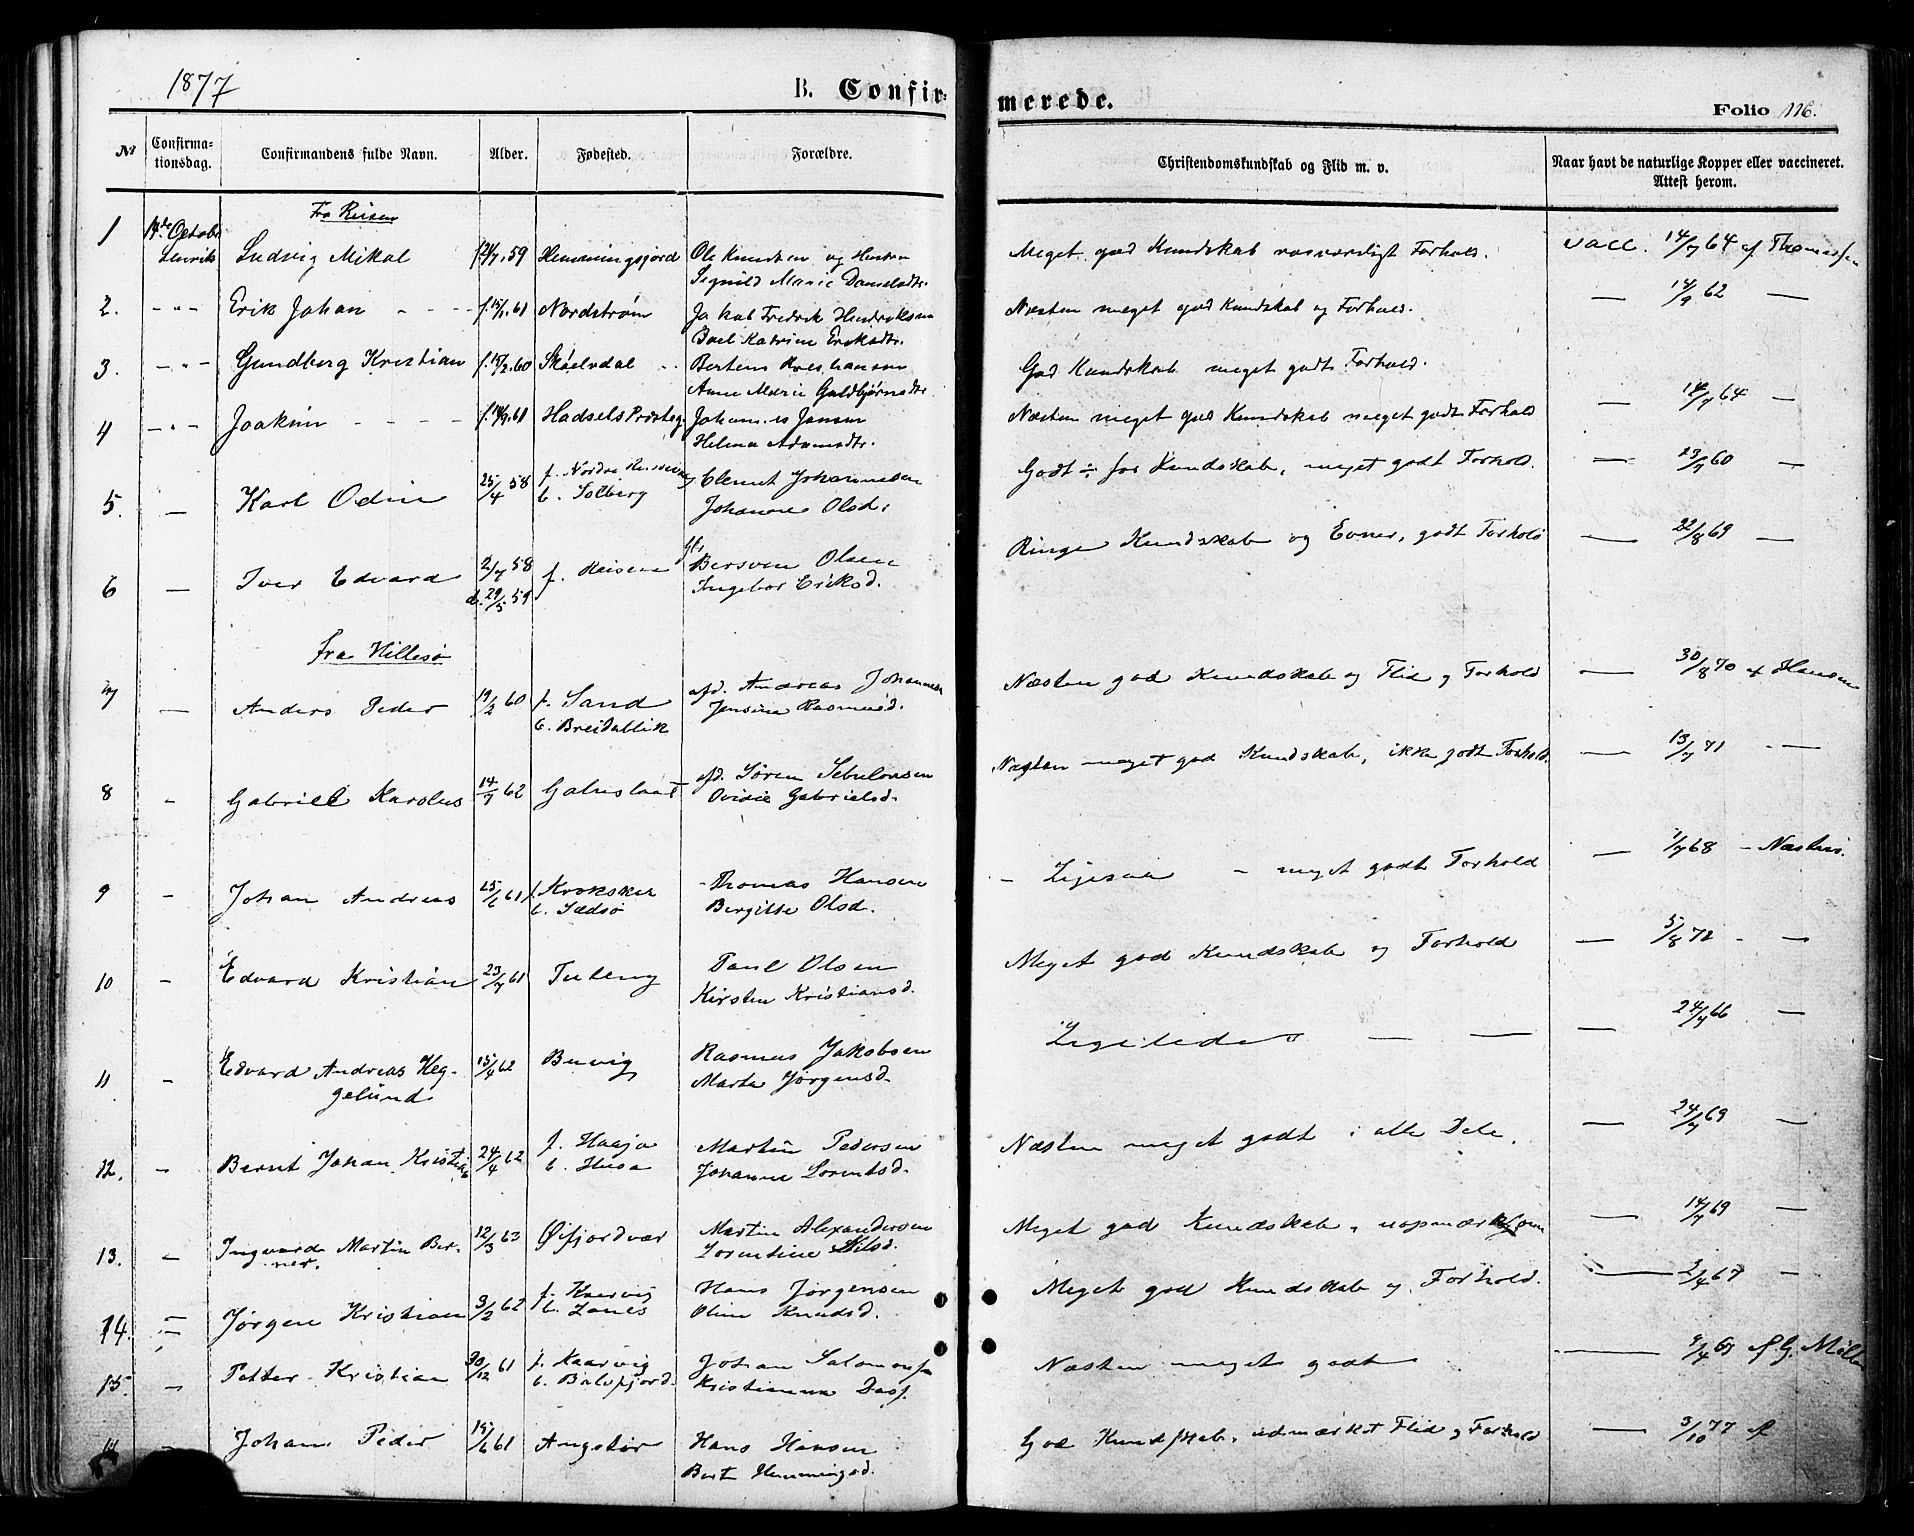 1877
B. Confir-
merede.
Folio 116.
№
Confirma-
tionsdag.
Confirmandens fulde Navn.
Alder.
Fødested.
Forældre.
Christendomskundskab og Flid m. v.
Naar havt de naturlige Kopper eller vaccineret.
Attest herom.
Fra Reisen
1 14de Octobr Ludvig Mikal 59 Hemmingsfjord Ole Knudsen og Hustru
Marie Danielsdtr. Meget god Kundskab rosværdigt Forhold. vacc. 14/7 64 af Thomesen
2. - " - Erik Johan - - - f. 15/1. 61 Nordstrøm Jakob Fredrik Hendriksen
Katrine Eriksdtr. Næsten meget god Kundskab og Forhold. — 14/9 62 —
3. - " - Gundberg Kristian f. 15/2. 60 Skøelvdal
Anne Marie Guldbjørnsdtr. God Kundskab meget godt Forhold.
4 - " - Joakim - - - - 61 Hadsels Præsteg. Johannes Jensen
Helena Adamsdtr. Næsten meget god Kundskab meget godt Forhold — 14/7 64 —
5. — Karl Odin 25/4 58 f. Nordre
b. Solberg Clemet Johannesen
Johanna Olsd. Godt ÷ for Kundskab, meget godt Forhold. — 23/7 60 —
6 — Iver Edvard 2/7 58
d. 29/5 59 f. Reisen Bersven Olsen
Ingebor Eriksd. Ringe Kundskab og Evner, godt Forhold — 22/8 69 —
fra Hillesø
7 — Anders Peder 19/2 60 f. Sand
b. Breidablik afd. Andreas Johannes
Jensina Rasmusd. Næsten god Kundskab og Flid og Forhold — 30/8 70 af Hansen
8 - Gabriel Karolus 14/7 62 afd. Søren Sebulonsen
Gabrielsd. Næsten meget god Kundskab, ikke godt Forhold. — 13/7 71 - —
9 - Johan Andreas 25/6 61 f. Krokskar
b. Sædsø Thomas Hansen
Bergitte Olsd. - Ligesaa - meget godt Forhold — 1/7 68 -
10 - Edvard Kristian 23/7 61 Tuleng Paul Olsen
Kirsten Kristiansd. Meget god Kundskab og Forhold — 5/8 72 - —
11 - Edvard Andreas Heg-
gelund 15/4 62 Buvig Rasmus Jakobsen
Marta Jørgensd. Ligeledes — — — 24/7 66 —
12. - Bernt Johan Kristian 24/4 62 f. Haaja
b. Husø Martin Pedersen
Johanna Lorentsd. Næsten meget godt i alle Dele. — 24/7 69 —
13. - Ingvard Martin Ber-
ner. 12/3 63 Øifjordvær Martin Alexandersen
Lorentine Nilsd. Meget god Kundskab, uopmærksom — 14/7 69 —
14. Jørgen Kristian 3/2 62 f. Kaarvig
b. Lanes Hans Jørgensen
Oline Knudsd. Meget god Kundskab og Forhold. — 2/4 67 —
15. - Petter Kristian 30/12 61 f. Kaarvig
b. Balsfjord. Johan Salomons
Kristianna Næsten meget godt — 9/4 67 af G. Møller
Johan Peder 15/6 61 Angstør Hans Hansen
Hemmingsd. God Kundskab, udmærket Flid og Forhold — 3/10 77 af